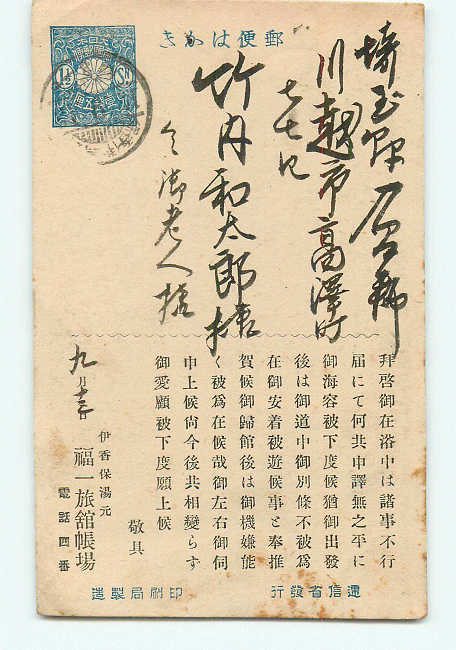 郵便はかき
1½ Sn
埼玉縣入間郡
川越市高澤町
竹内和太郎様
御老人様
拝啓御在浴中は諸事不行
届にて何共申譯無之平に
御海容被下度候猶御出發
後は御道中御別條不被為
在御安着被遊候事と奉推
賀候御歸館後は御機嫌能
く被為在候哉御左右御伺
申上候尚今後共相變らず
御愛顧被下度願上候
敬具
九月十三日
伊香保湯元
福一旅舘帳場
電話四番
逓信省發行
印刷局製造